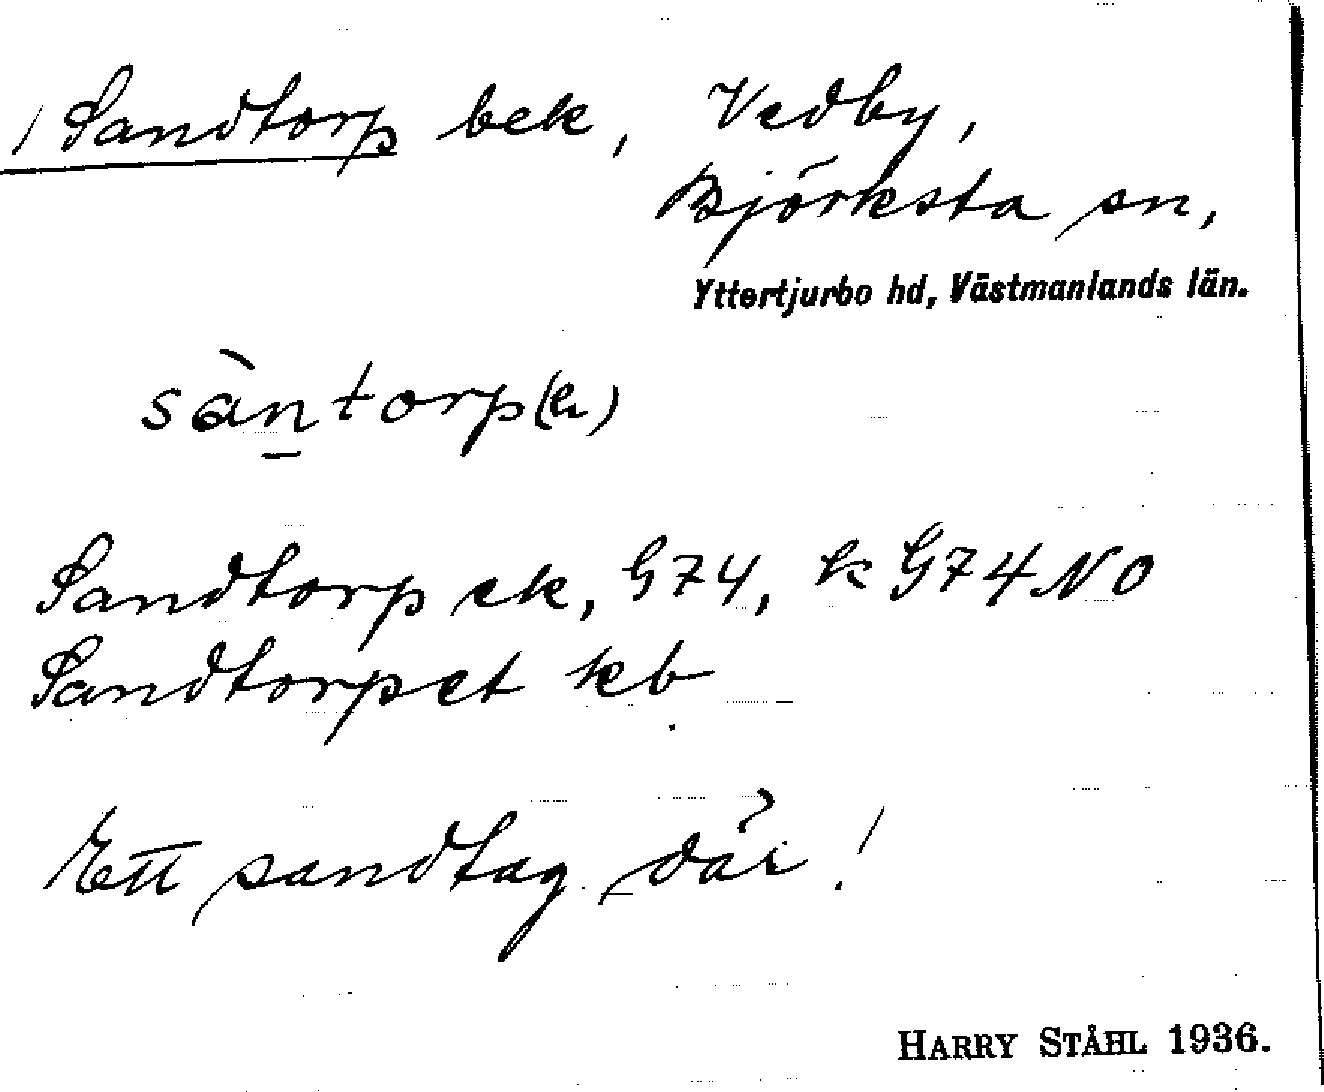 / Sandtorp bek, Vedby,
Björksta sn,
Yttertjurbo hd, Västmanlands län.
sàn̲torp(e)
Sandtorp ek, G74, k G74 NO
Sandtorpet kb
Ett sandtag där!
HARRY STÅHL 1936.